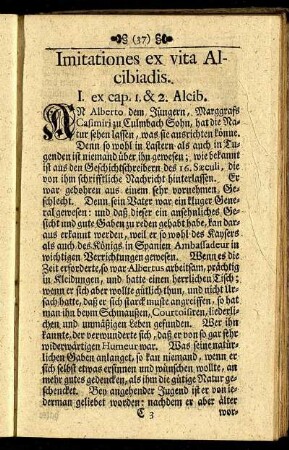 (37)
Imitationes ex vita Al-
cibiadis.
I. ex cap. 1. & 2. Alcib.
AN Alberto dem Jüngern, Marggrafs
Casimiri zu Culmbach Sohn, hat die Na-
tur sehen lassen, was sie ausrichten könne.
Denn so wohl in Lastern als auch in Tu-
genden ist niemand über ihn gewesen; wie bekannt
ist aus den Geschichtschreibern des 16. Sæculi, die
von ihm schrifftliche Nachricht hinterlassen. Er
war gebohren aus einem sehr vornehmen Ge-
schlecht. Denn sein Vater war ein kluger Gene-
ral gewesen: und daß dieser ein ansehnliches Ge-
sicht und gute Gaben zu reden gehabt habe, kan dar-
aus erkannt werden, weil er so wohl des Kaysers
als auch des Königs in Spanien Ambassadeur in
wichtigen Verrichtungen gewesen. Wenn es die
Zeit erforderte, so war Albertus arbeitsam, prächtig
in Kleidungen, und hatte einen herrlichen Tisch;
wenn er sich aber wollte gütlich thun, und nicht Ur-
sach hatte, daß er sich starck muste angreiffen, so hat
man ihn beym Schmaußen, Courtoisiren, liederli-
chen und unmäßigen Leben gefunden. Wer ihn
kannte, der verwunderte sich, daß er von so gar sehr
widerwärtigen Humeur war. Was seine natür-
lichen Gaben anlanget, so kan niemand, wenn er
sich selbst etwas ersinnen und wünschen wollte, an
mehr gutes gedencken, als ihm die gütige Natur ge-
schencket. Bey angehender Jugend ist er von ie-
derman geliebet worden: nachdem er aber älter
C 3 wor-